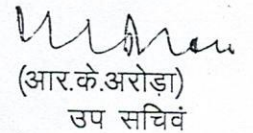 (आर.के.अरोड़ा)
उप सचिवं